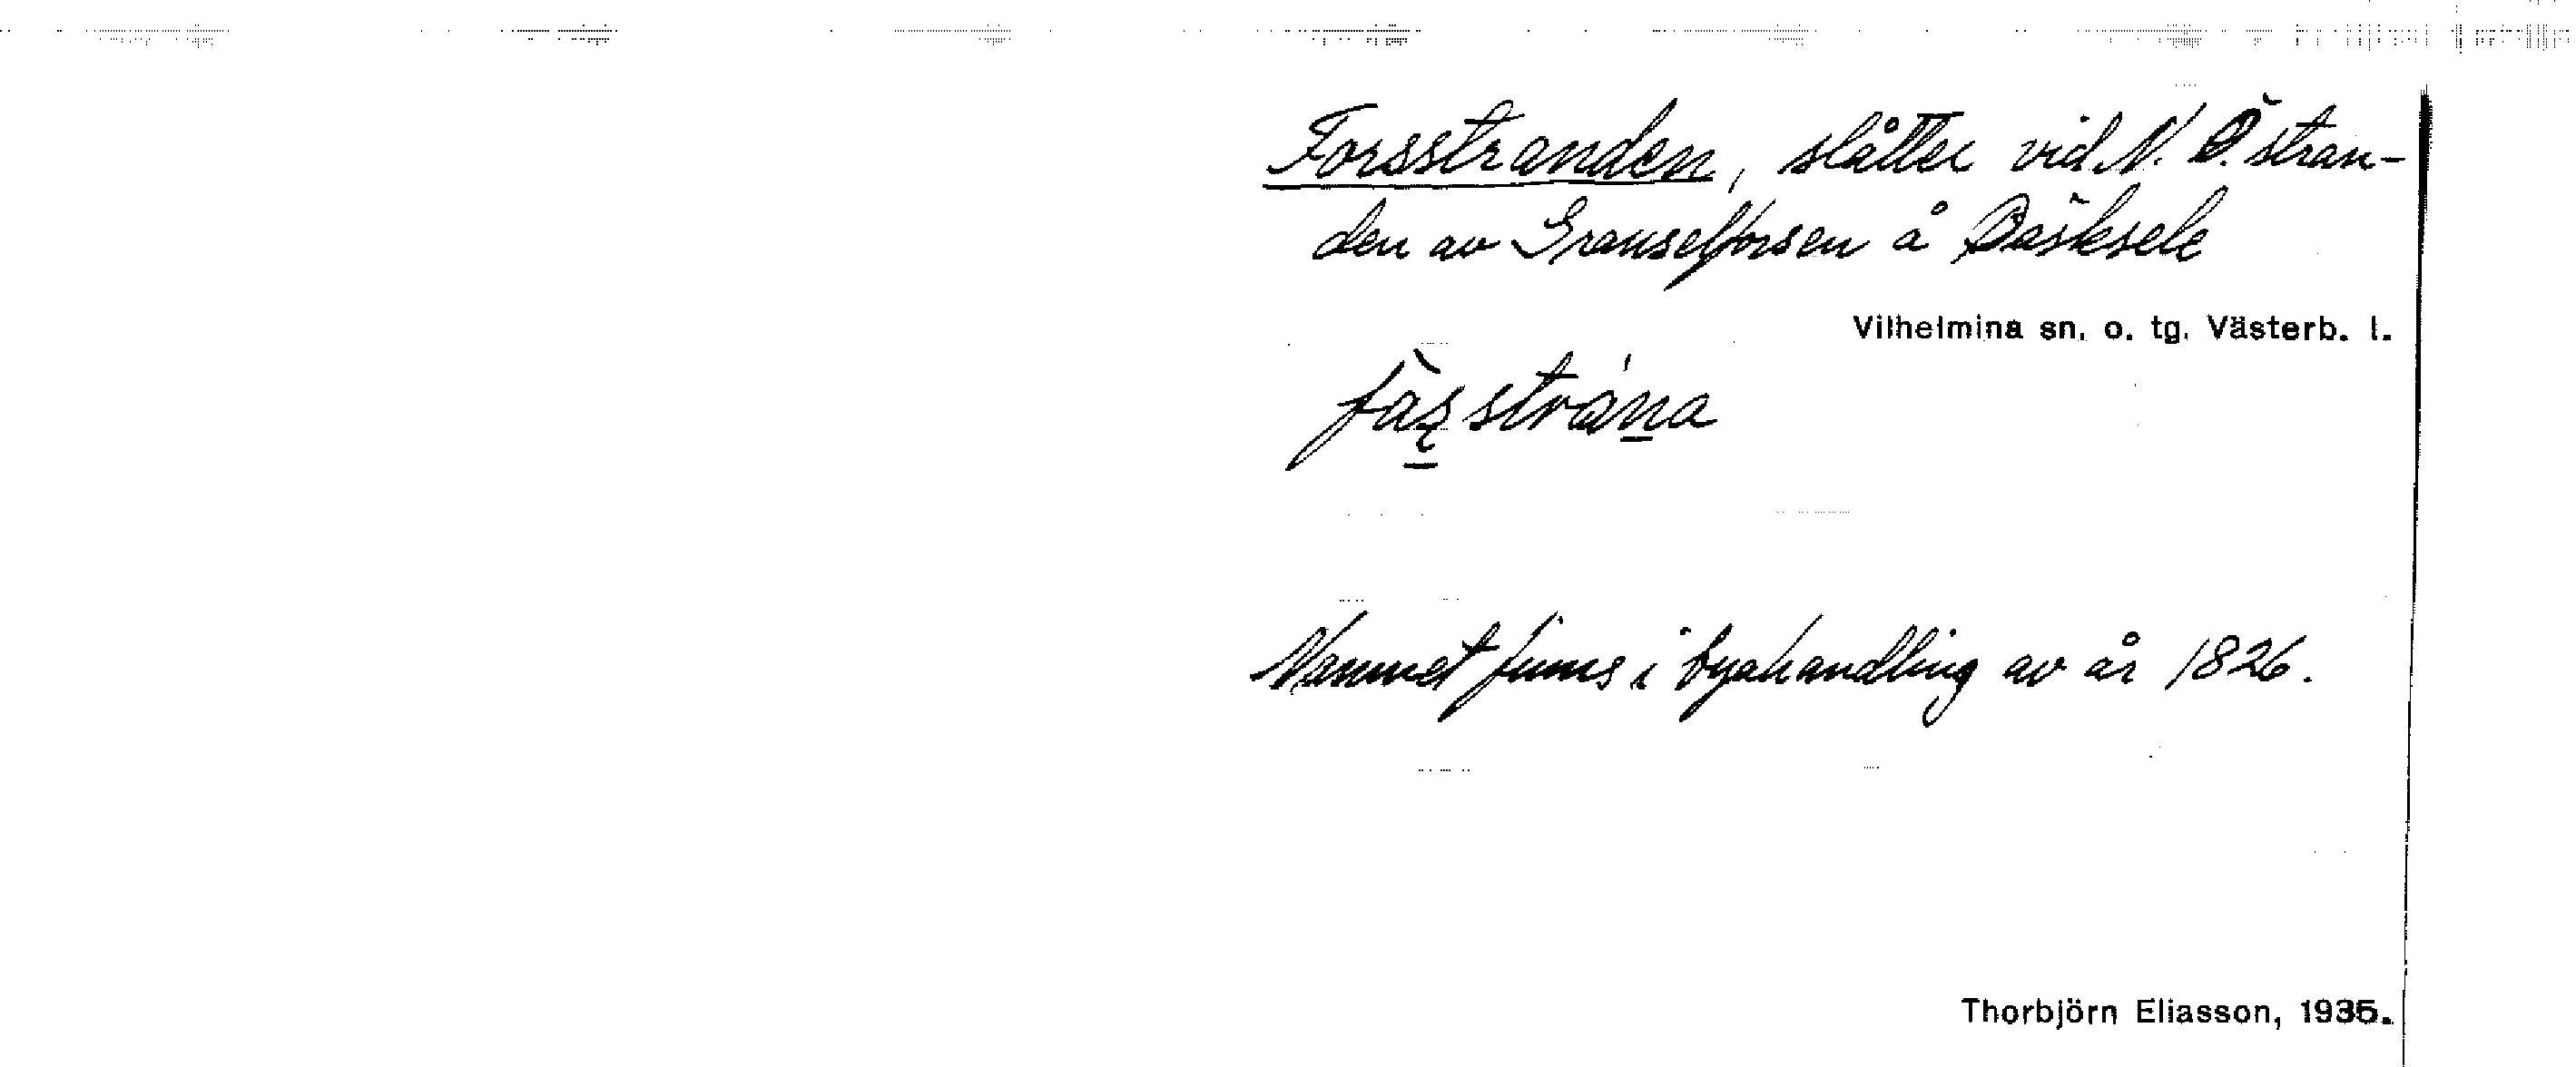 Forsstranden, slåtter vid N. Ö. stran-
den av Granselforsen å Bäsksele
Vilhelmina sn. o. tg. Västerb. l.
Namnet finns i byahandling av år 1826.
Thorbjörn Eliasson, 1935.